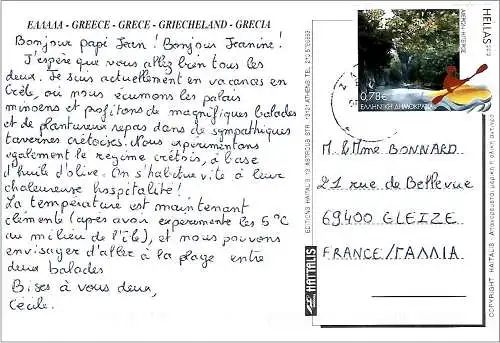 ΕΛΛΑΔΑ - GREECE - GRECE - GRIECHELAND - GRECIA
Bonjour papi Jean ! Bonjour Jeanine !
J'espère que vous allez bien tous les
deux. Je suis actuellement en vacances en
Crète, où nous écumons les palais
minoens et profitons de magnifiques balades
et de plantureux repas dans de sympathiques
tavernes crétoises. Nous expérimentons
également le régime crétois, à base
d'huile d'olive. On s'habitue vite à leur
chaleureuse hospitalité !
La température est maintenant
clémente (après avoir expérimenté les 5°C
au milieu de l'île), et nous pouvons
envisager d'aller à la plage entre
deux balades
Bises à vous deux,
Cécile.
HELLAS
0,78€
ΕΛΛΗΝΙΚΗ ΔΗΜΟΚΡΑΤΙΑ
M & Mme BONNARD
21 rue de Bellevue
69400 GLEIZE
FRANCE/ΓΑΛΛΙΑ
HAITALIS
COPYRIGHT HAITALIS